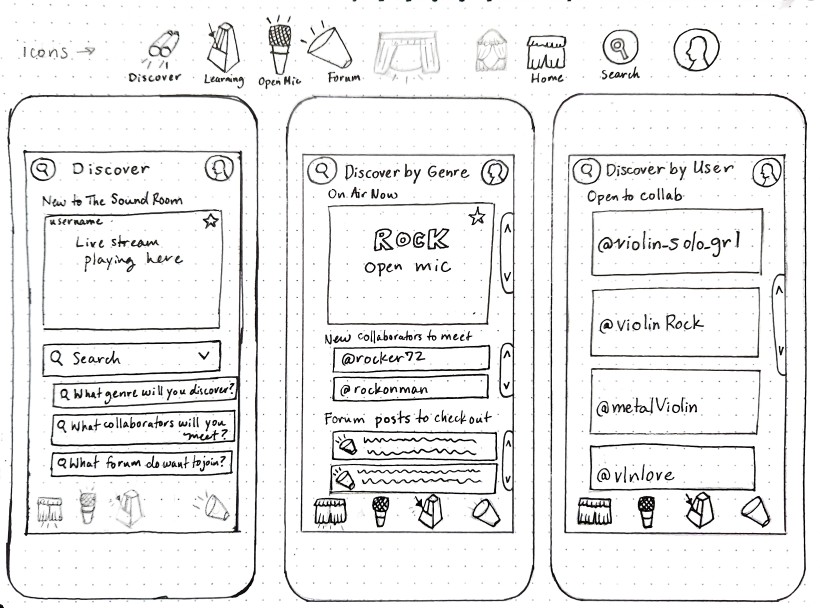 Icons →
Discover
Learning
Open Mic
Forum
Home
Search
Discover
New to The Sound Room
username
Live stream
playing here
Search
What genre will you discover?
What collaborators will you
meet?
What forum do want to join?
Discover by Genre
On Air Now
ROCK
open mic
New collaborators to meet
@rocker72
@rockonman
Forum posts to check out
Discover by User
Open to collab
@violin_solo_gr1
@violinRock
@metalViolin
@vlnlove